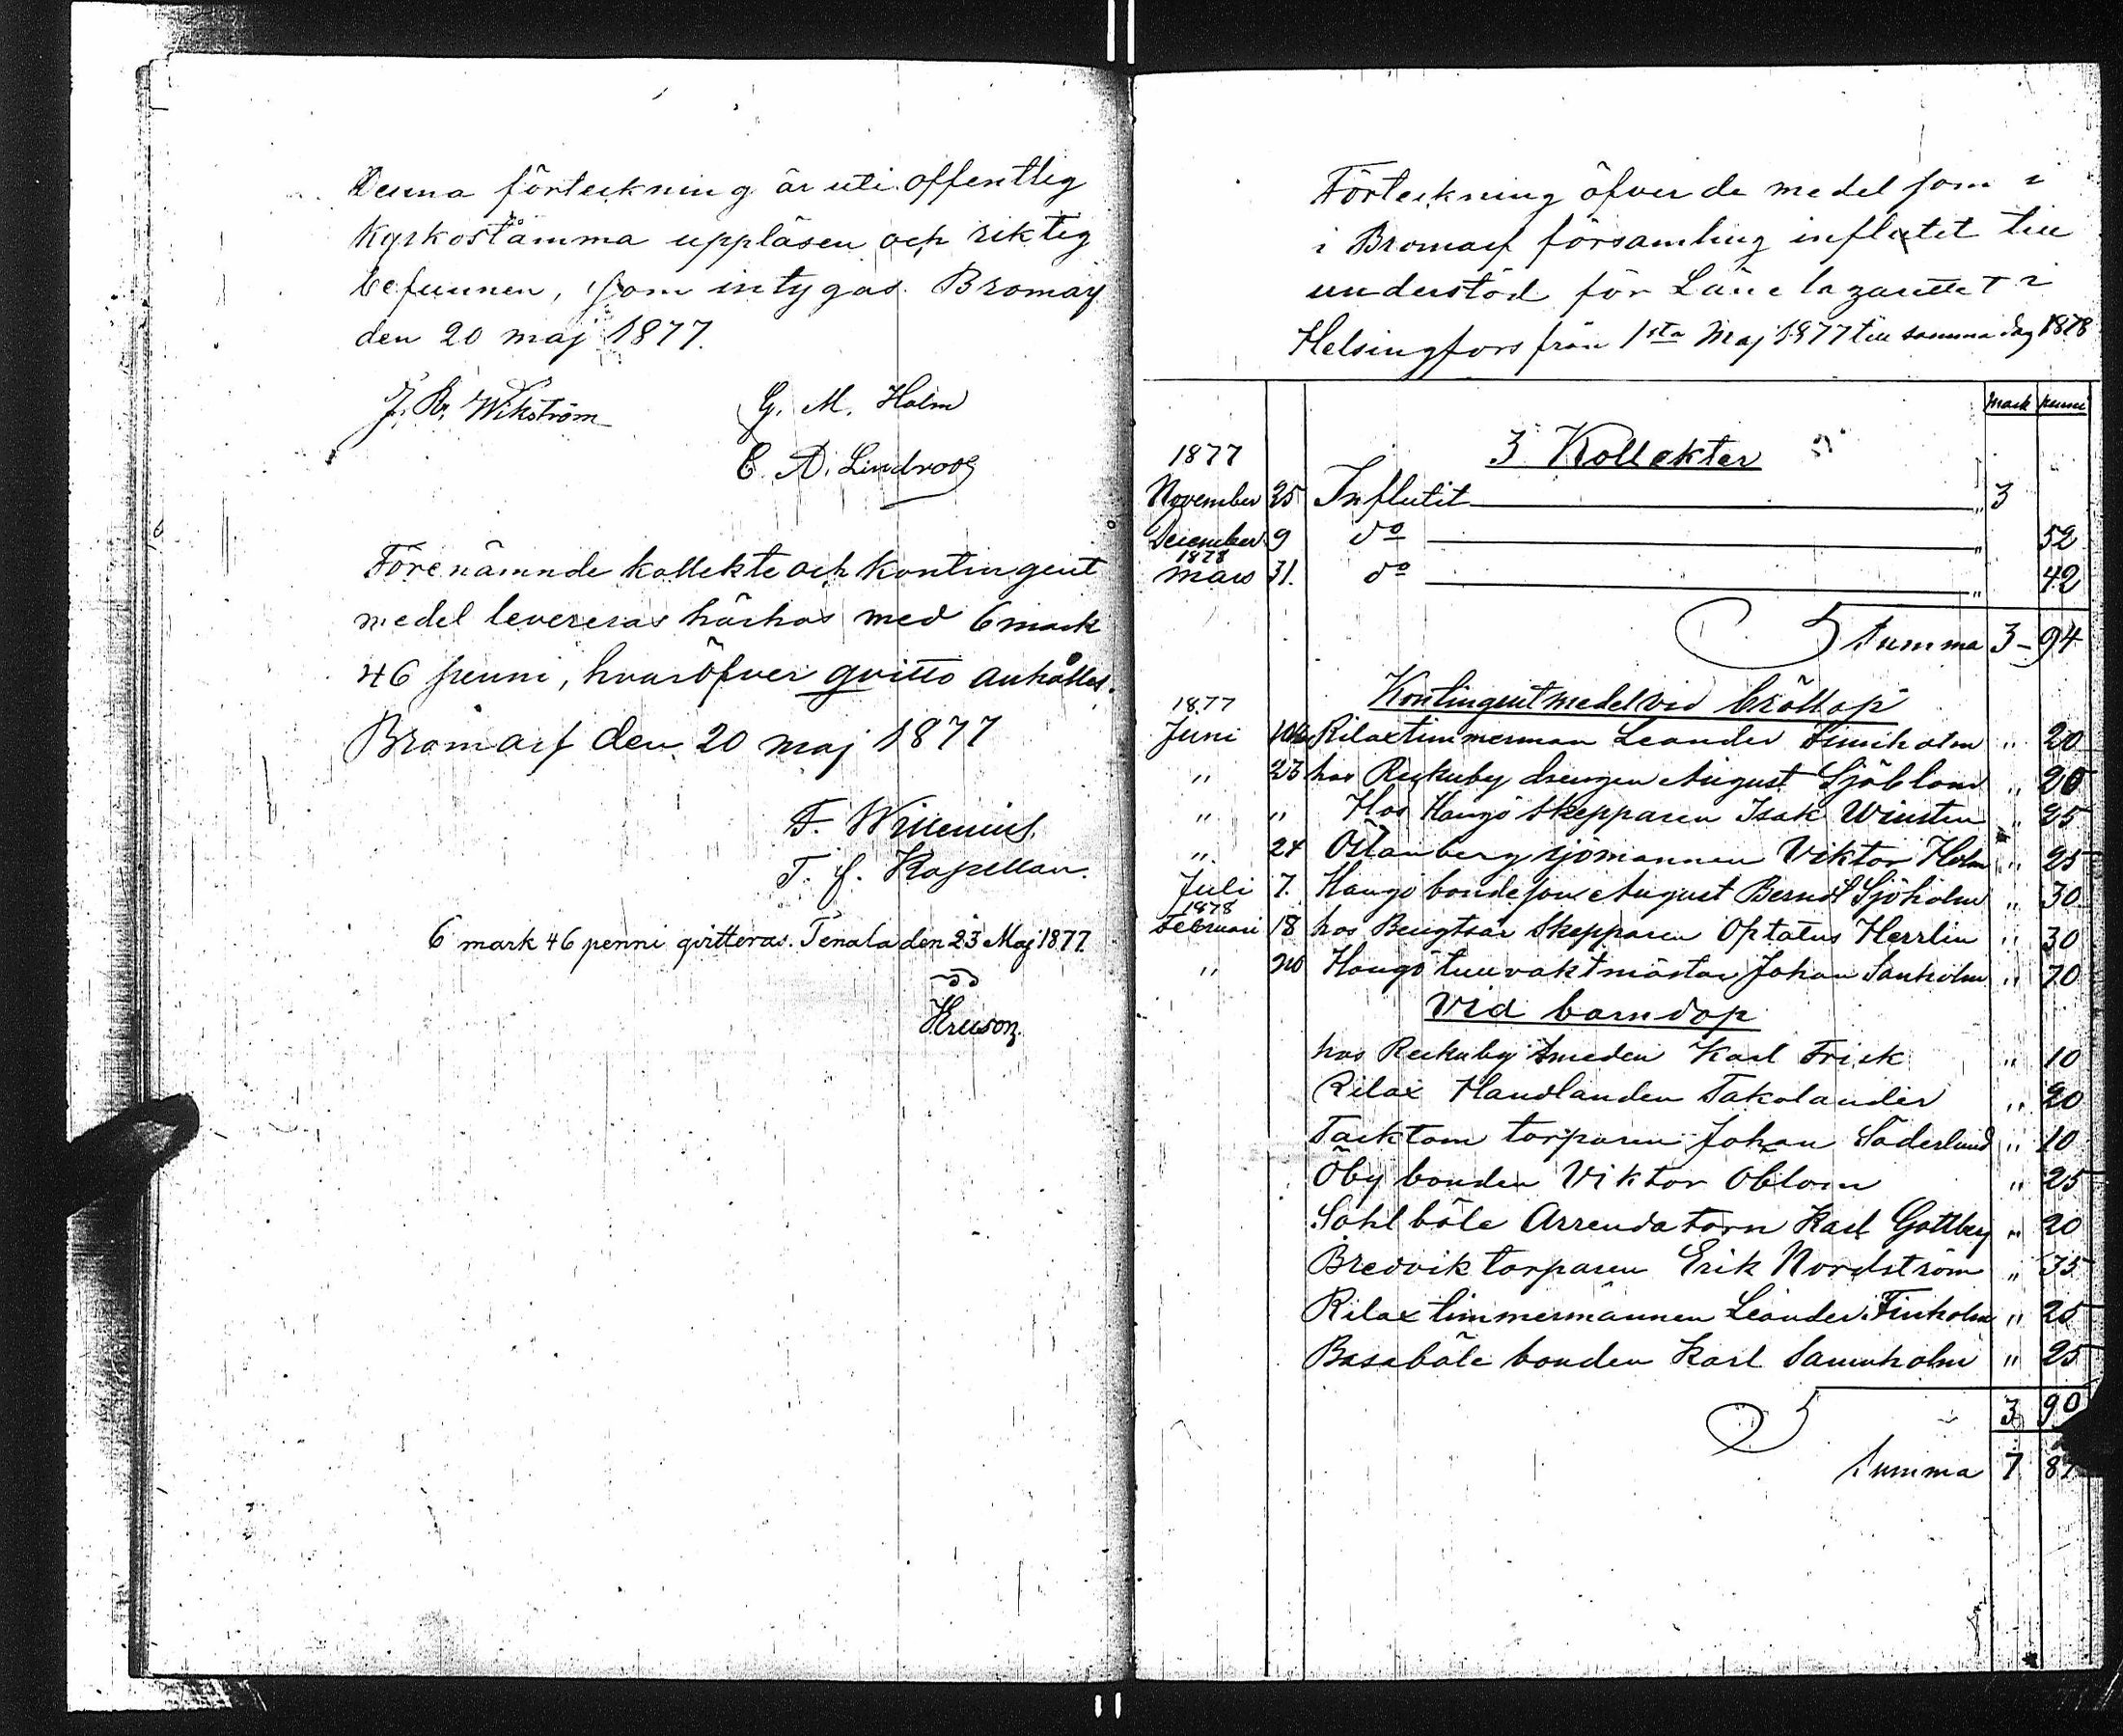 Denna förteckning är uti offentlig
Kyrkostämma uppläsen och riktig
befunnen, som intygas. Bromarf
den 20 maj 1877.
J. Kr. Wikström G. M. Holm
C. A. Lindroos
Förenämnde kollekte och kontingent
medel levereras härhos med 6 mark
46 penni, hvaröfver qvitto anhålles.
Bromarf den 20 maj 1877
F. Willenius.
T. f. Kapellan.
6 mark 46 penni qvitteras. Tenala den 23 Maj 1877.
Förteckning öfver de medel som i
i Bromarf församling influtet till
understöd för Läne lazarettet i
Helsingfors från 1sta Maj 1877 till samma dag 1878
mark penni
1877 3 Kollekter
November 25 Influtit „ 3
December 9 do „ 52
1878
Mars 31. do „ 42
Summa 3 - 94
1877 Kontingentmedel vid bröllop
Juni 10 Rilax timmerman Leander Finnholm „ 20
„ 23 hos Reckuby drengen August Sjöblom „ 20
„ „ Hos Hangö Skepparen Isak Winsten „ 25
„ 24 Östanberg sjömannen Viktor Holm „ 25
Juli 7. Hangö bondeson August Berndt Sjöholm „ 30
1878
Februari 18 hos Bengtsår Skepparen Optatus Herrlin „ 30
„ 20 Hangö tullvaktmästar Johan Sanholm „ 70
Vid barndop
hos Reckuby Smeden Karl Frisk „ 10
Rilax Handlanden Takolander „ 20
Tacktom torparen Johan Söderlund „ 10
Öby bonden Viktor Öblom „ 25
Sahlböle Arrendatorn Karl Gottberg „ 20
Bredvik torparen Erik Nordström „ 35
Rilax timmermannen Leander Finholm „ 25
Basaböle bonden Karl Sannholm „ 25
3 90
Summa 7 87